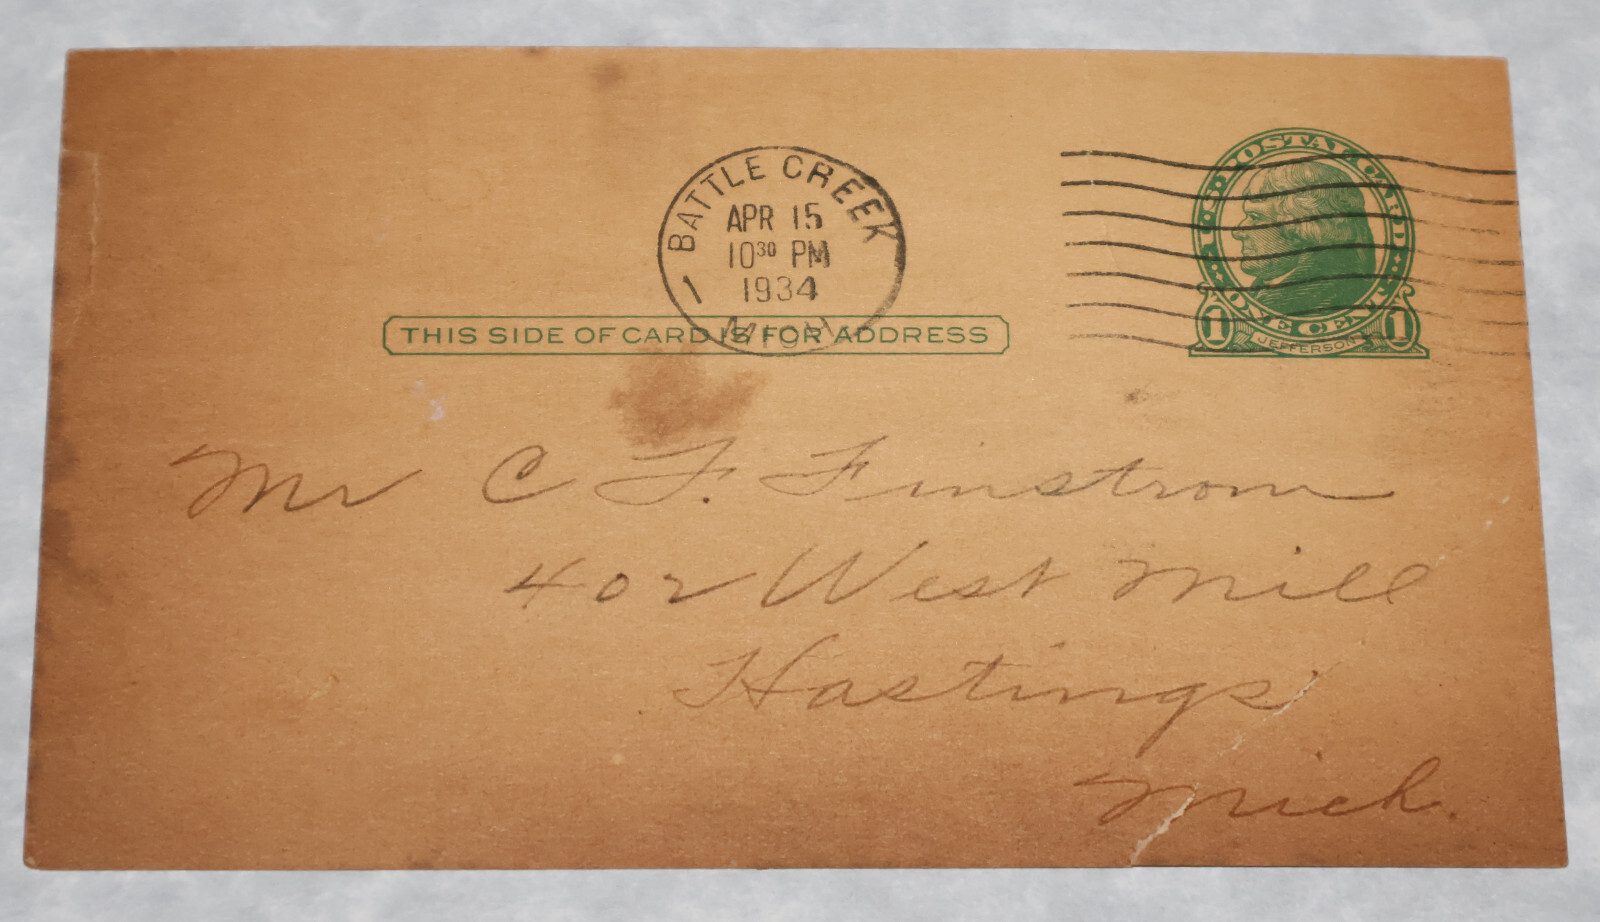 BATTLE CREEK
APR 15
10³⁰ PM
1934
MICH.
1
U.S. POSTAL CARD
ONE CENT
1 1
JEFFERSON
THIS SIDE OF CARD IS FOR ADDRESS
Mr C F. Finstrom
402 West Mill
Hastings
Mich.